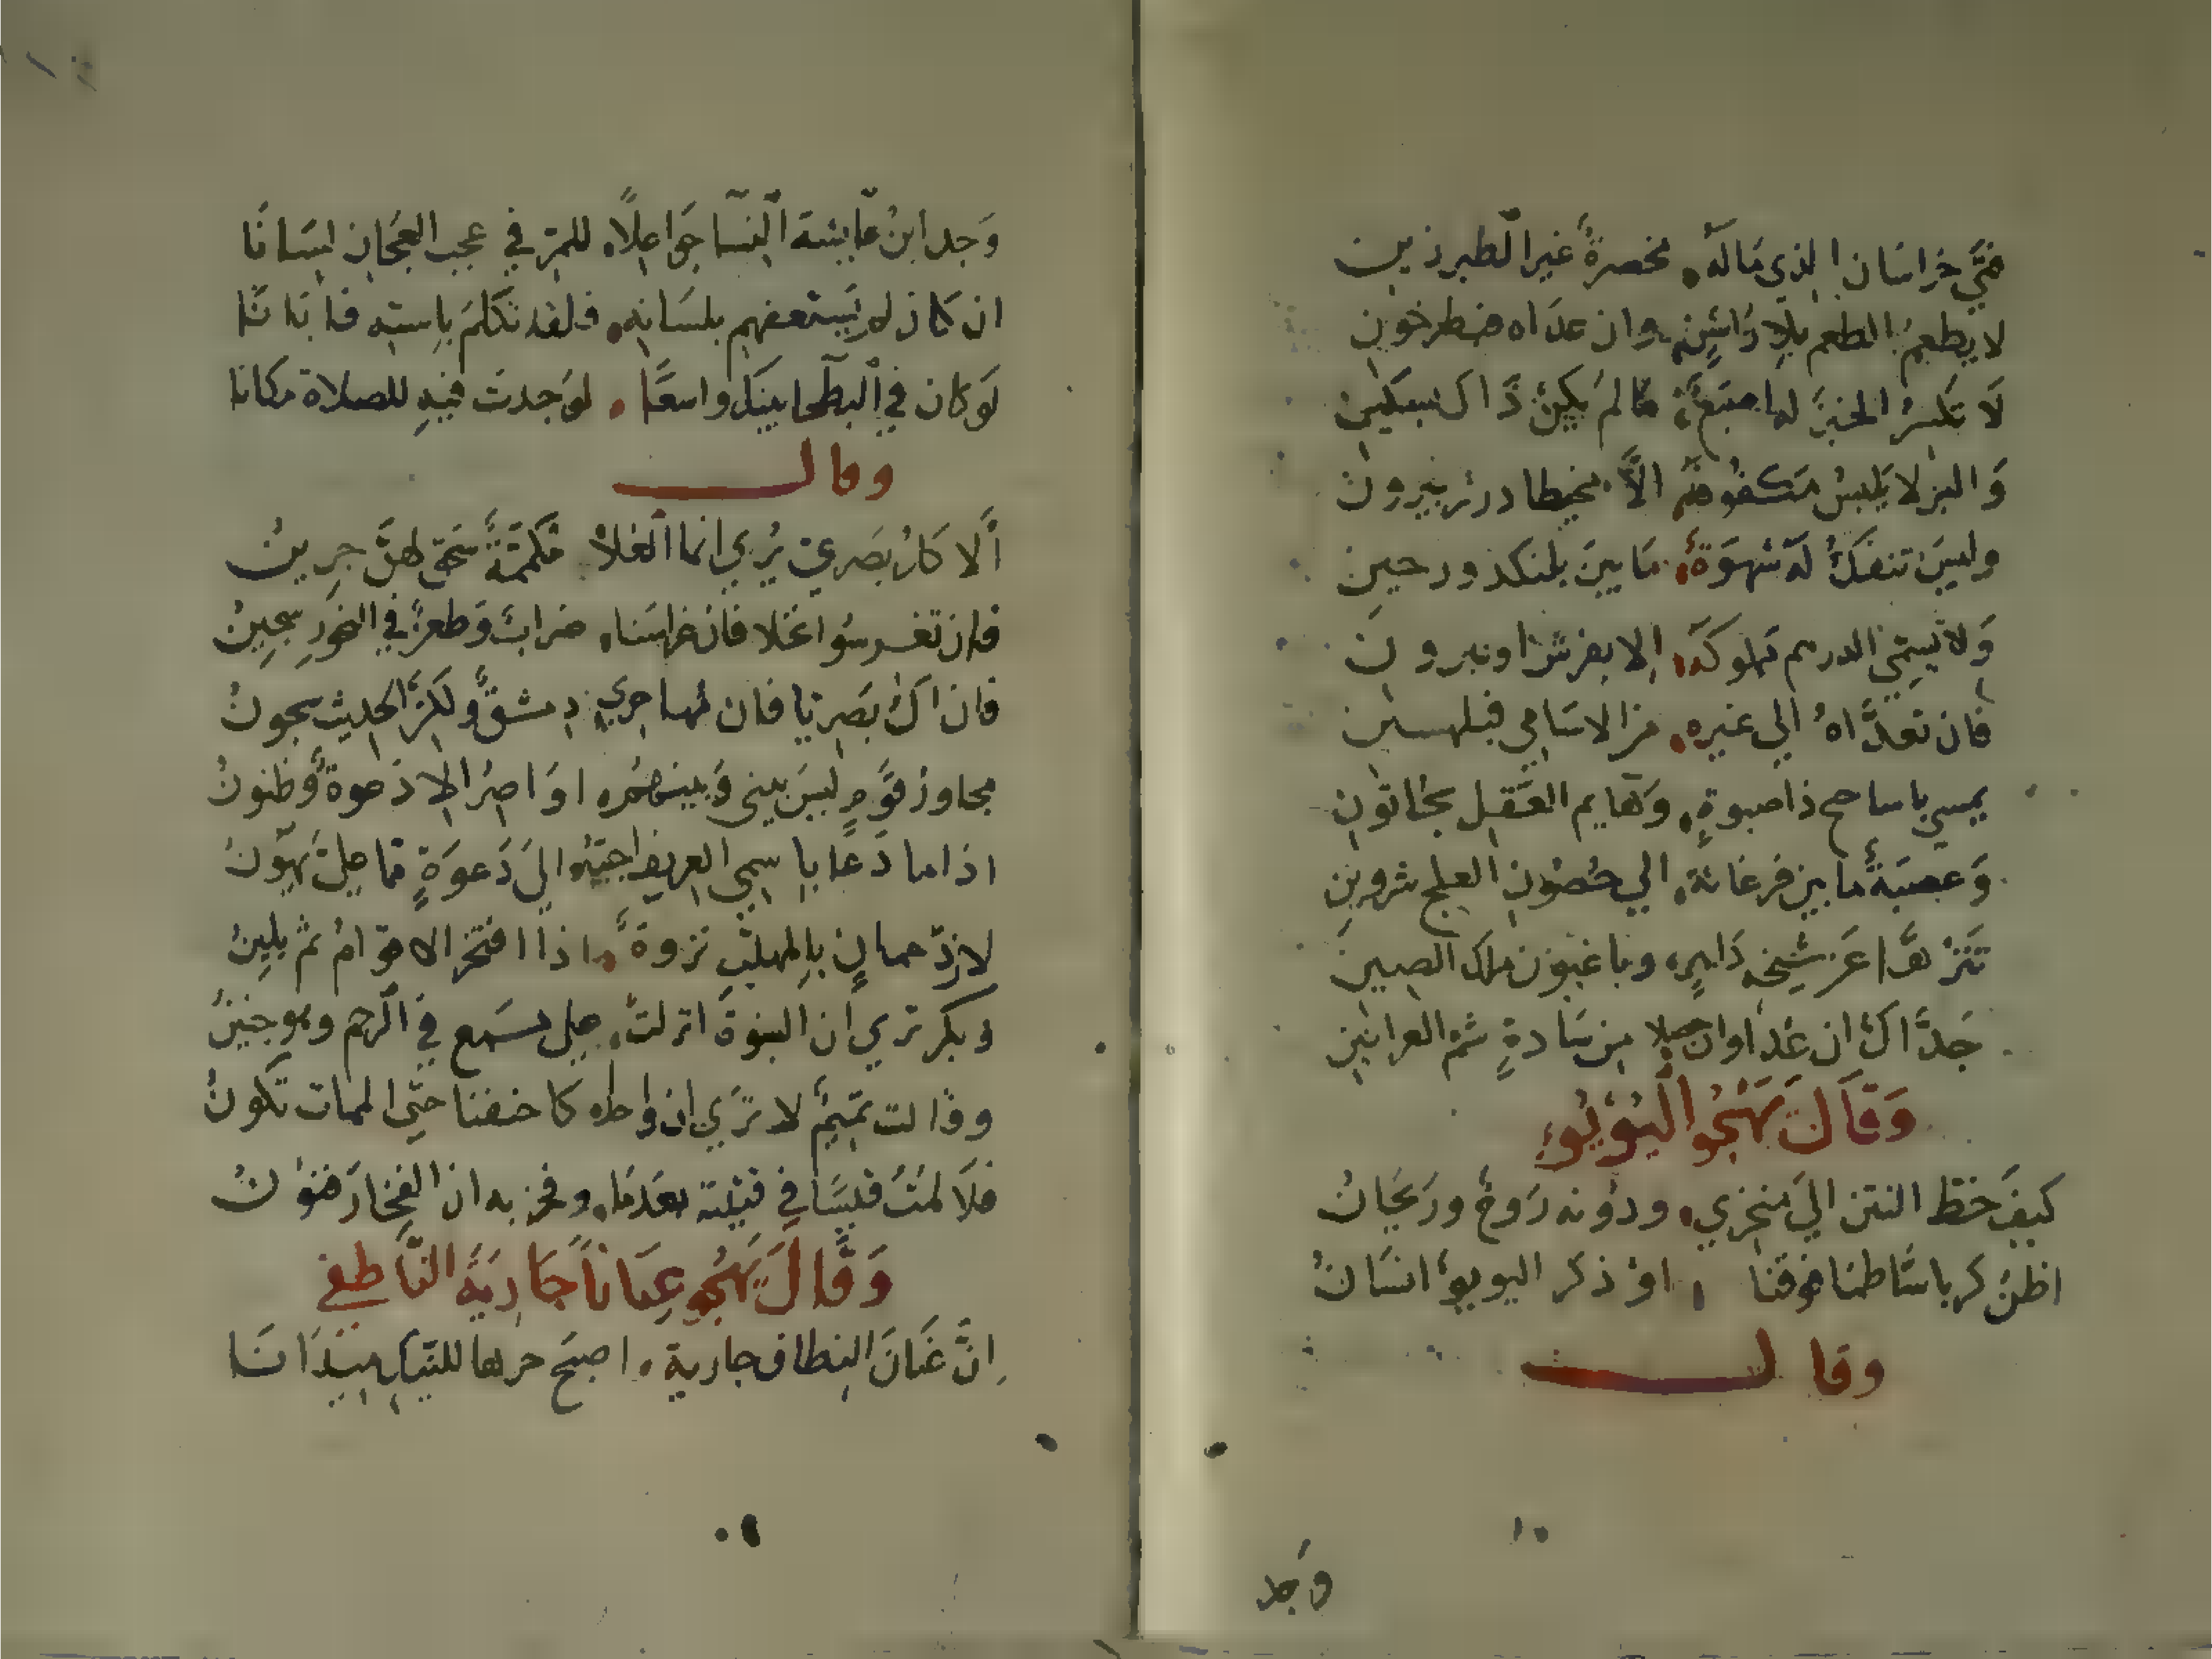 فتى خراسان الذي ماله مخصرة غير الطبرزين
لا يطعم الطعم بلا راشن وان عداه فطرخون
لا تكسر الخبز له اصبع ما لم يكن ذاك بسكين
والبز لا يلبس مكفوفه الا مخيطا
وليس تنفك له شهوة ما بين بلنكد ورحين
ولا يسمي الدرهم مملوكه الا بفرشا ونيرون
فان تعداه الي غيره من الاسامي
يمسي باساهج ذا صبوة وهايم العقل بخاتون
وعصبة ما بين فرغانة الي حصون العلج شروين
عن شيخه داهر وباغبون ملك الصين
جداك ان عدا وان حصلا من سادة شم العرانين
وقال يهجو اليؤيؤ
كيف خظ النتن الي منخزي ودونه روح وريحان
اظن كرباسا طما فوقنا او ذكر اليويو انسان
وقال
وجد
وجد ابن عايشة النسا جواعلا للمر في عجب العجان لسانا
ان كان لم يستعفهم بلسانه فلقد تكلم باسته فابانا
لو كان في البطحا بيتك واسعا لوجدت فيه للصلاة مكانا
وقال
الا كل بصري يري انما العلا مكممة سحق لهن جرين
فان تغرسوا نخلا فان غراسنا ضراب وطعن في النحور سجين
فان اك بصريا فان مهاجري دمشق ولكن الحديث شجون
مجاوز قوم ليس بيني وبينهم اواصر الا دعوة وظنون
اذا ما دعا باسمي العريف اجبته الي دعوة مما علي يهون
لازد عمان بالمهلب نزوة اذا افتخر الاقوام ثم يلين
وبكر تري ان النبوة انزلت علي مسمع في الرحم وهو جنين
وقالت تميم لا تري ان واحدا كاحنفنا حتي الممات تكون
فلا لمت قيسا في قتيبة بعدها وفخر به ان الفخار فنون
وقال يهجو عنانا جارية الناطفي
ان عنان النطاف جارية اصبح حرها للنيك ميدانا